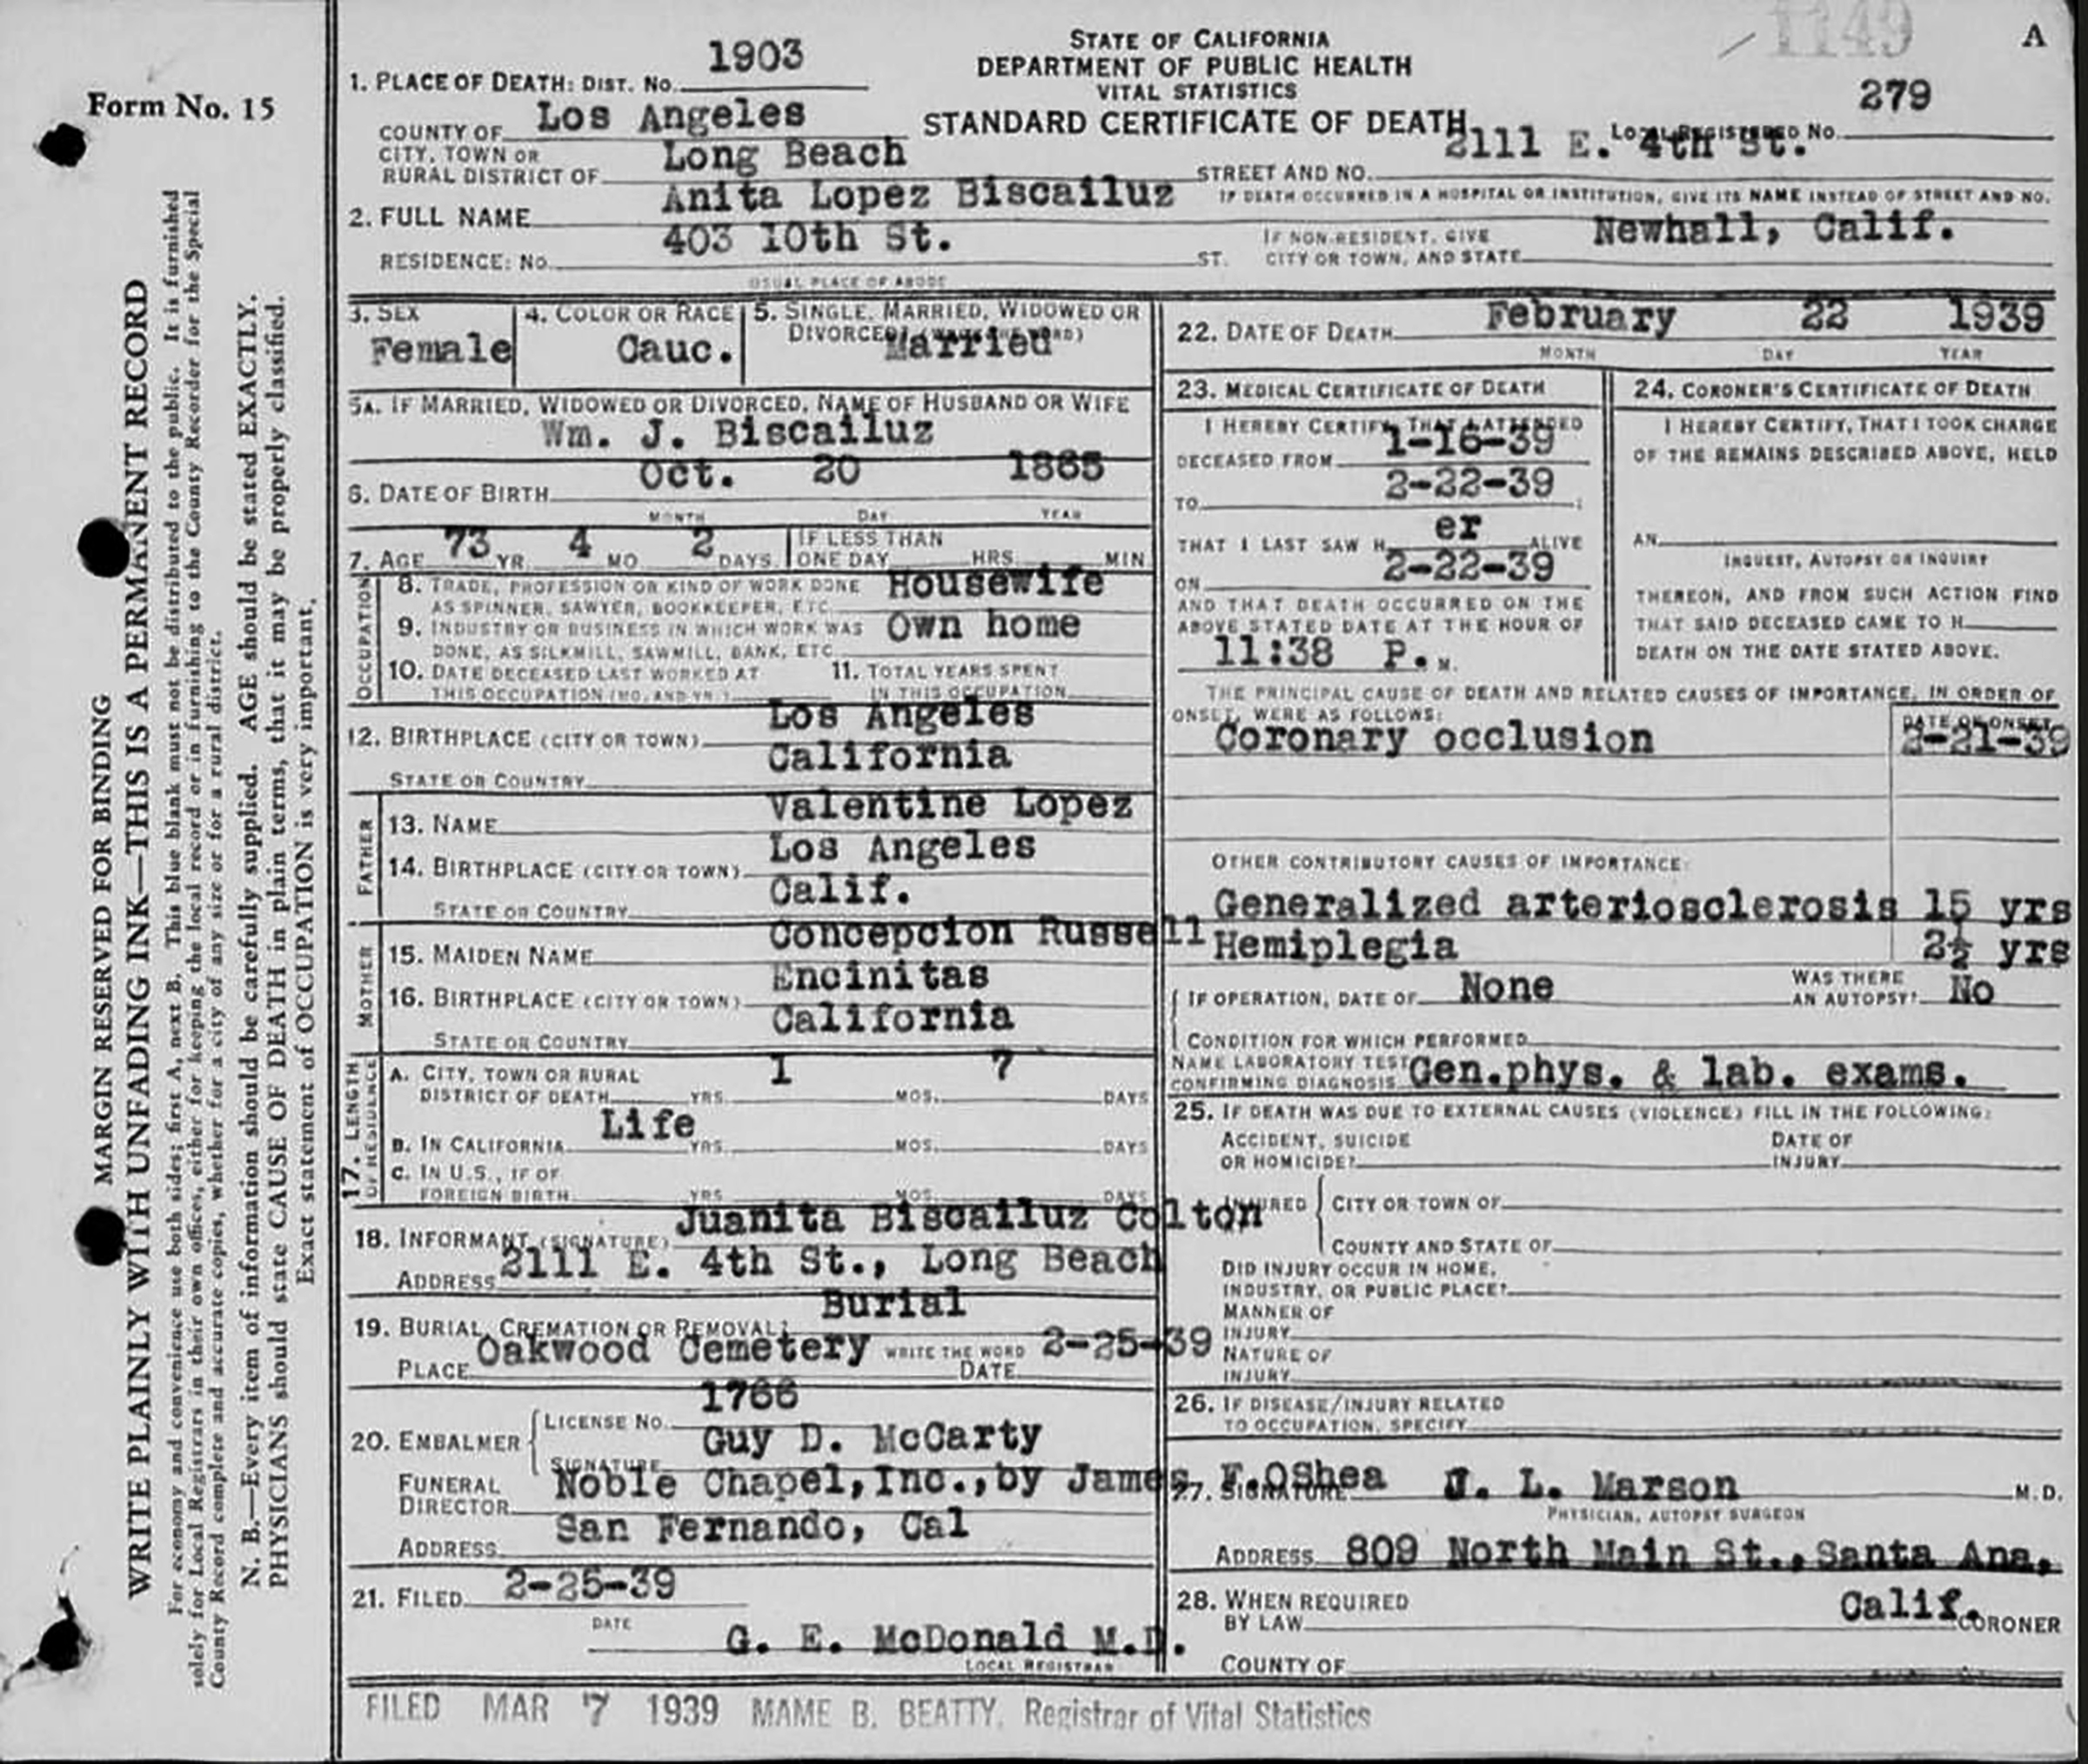 1149
A
Form No. 15
MARGIN RESERVED FOR BINDING
WRITE PLAINLY WITH UNFADING INK—THIS IS A PERMANENT RECORD
For economy and convenience use both sides; first A, next B. This blue blank must not be distributed to the public. It is furnished
solely for Local Registrars in their own offices, either for keeping the local record or in furnishing to the County Recorder for the Special
County Record complete and accurate copies, whether for a city of any size or for a rural district.
N. B.—Every item of information should be carefully supplied. AGE should be stated EXACTLY.
PHYSICIANS should state CAUSE OF DEATH in plain terms, that it may be properly classified.
Exact statement of OCCUPATION is very important.
STATE OF CALIFORNIA
DEPARTMENT OF PUBLIC HEALTH
VITAL STATISTICS
STANDARD CERTIFICATE OF DEATH
1. PLACE OF DEATH: DIST. No. 1903
LOCAL REGISTERED No. 279
COUNTY OF Los Angeles
CITY, TOWN OR
RURAL DISTRICT OF Long Beach
STREET AND NO. 2111 E. 4th St.
IF DEATH OCCURRED IN A HOSPITAL OR INSTITUTION, GIVE ITS NAME INSTEAD OF STREET AND NO.
2. FULL NAME Anita Lopez Biscailuz
RESIDENCE: No. 403 10th St. ST.
USUAL PLACE OF ABODE
IF NON-RESIDENT, GIVE
CITY OR TOWN, AND STATE Newhall, Calif.
3. SEX
Female
4. COLOR OR RACE
Cauc.
5. SINGLE, MARRIED, WIDOWED OR
DIVORCED (WRITE THE WORD)
Married
5A. IF MARRIED, WIDOWED OR DIVORCED, NAME OF HUSBAND OR WIFE
Wm. J. Biscailuz
6. DATE OF BIRTH Oct. 20 1865
MONTH DAY YEAR
7. AGE 73 YR. 4 MO. 2 DAYS
IF LESS THAN
ONE DAY HRS. MIN.
OCCUPATION
8. TRADE, PROFESSION OR KIND OF WORK DONE
AS SPINNER, SAWYER, BOOKKEEPER, ETC. Housewife
9. INDUSTRY OR BUSINESS IN WHICH WORK WAS
DONE, AS SILKMILL, SAWMILL, BANK, ETC. Own home
10. DATE DECEASED LAST WORKED AT
THIS OCCUPATION (MO. AND YR.)
11. TOTAL YEARS SPENT
IN THIS OCCUPATION
12. BIRTHPLACE (CITY OR TOWN) Los Angeles
STATE OR COUNTRY California
FATHER
13. NAME Valentine Lopez
14. BIRTHPLACE (CITY OR TOWN) Los Angeles
STATE OR COUNTRY Calif.
MOTHER
15. MAIDEN NAME Concepcion Russell
16. BIRTHPLACE (CITY OR TOWN) Encinitas
STATE OR COUNTRY California
17. LENGTH
OF RESIDENCE
A. CITY, TOWN OR RURAL
DISTRICT OF DEATH 1 YRS. 7 MOS. DAYS
B. IN CALIFORNIA Life YRS. MOS. DAYS
C. IN U.S., IF OF
FOREIGN BIRTH YRS. MOS. DAYS
18. INFORMANT (SIGNATURE) Juanita Biscailuz Colton
ADDRESS 2111 E. 4th St., Long Beach
19. BURIAL, CREMATION OR REMOVAL? Burial
WRITE THE WORD
PLACE Oakwood Cemetery DATE 2-25-39
20. EMBALMER
LICENSE No. 1766
SIGNATURE Guy D. McCarty
FUNERAL
DIRECTOR Noble Chapel, Inc., by James F. OShea
ADDRESS San Fernando, Cal
21. FILED 2-25-39
DATE
G. E. McDonald M.D.
LOCAL REGISTRAR
22. DATE OF DEATH February 22 1939
MONTH DAY YEAR
23. MEDICAL CERTIFICATE OF DEATH
I HEREBY CERTIFY, THAT I ATTENDED
DECEASED FROM 1-16-39
TO 2-22-39;
THAT I LAST SAW H er ALIVE
ON 2-22-39
AND THAT DEATH OCCURRED ON THE
ABOVE STATED DATE AT THE HOUR OF
11:38 P. M.
24. CORONER'S CERTIFICATE OF DEATH
I HEREBY CERTIFY, THAT I TOOK CHARGE
OF THE REMAINS DESCRIBED ABOVE, HELD
AN
INQUEST, AUTOPSY OR INQUIRY
THEREON, AND FROM SUCH ACTION FIND
THAT SAID DECEASED CAME TO H
DEATH ON THE DATE STATED ABOVE.
THE PRINCIPAL CAUSE OF DEATH AND RELATED CAUSES OF IMPORTANCE, IN ORDER OF
ONSET, WERE AS FOLLOWS:
DATE OF ONSET
Coronary occlusion 2-21-39
OTHER CONTRIBUTORY CAUSES OF IMPORTANCE:
Generalized arteriosclerosis 15 yrs
Hemiplegia 2½ yrs
IF OPERATION, DATE OF None
WAS THERE
AN AUTOPSY? No
CONDITION FOR WHICH PERFORMED
NAME LABORATORY TEST
CONFIRMING DIAGNOSIS Gen.phys. & lab. exams.
25. IF DEATH WAS DUE TO EXTERNAL CAUSES (VIOLENCE) FILL IN THE FOLLOWING:
ACCIDENT, SUICIDE
OR HOMICIDE?
DATE OF
INJURY
INJURED
CITY OR TOWN OF
COUNTY AND STATE OF
DID INJURY OCCUR IN HOME,
INDUSTRY, OR PUBLIC PLACE?
MANNER OF
INJURY
NATURE OF
INJURY
26. IF DISEASE/INJURY RELATED
TO OCCUPATION, SPECIFY
27. SIGNATURE J. L. Marson M.D.
PHYSICIAN, AUTOPSY SURGEON
ADDRESS 809 North Main St., Santa Ana,
Calif.
28. WHEN REQUIRED
BY LAW CORONER
COUNTY OF
FILED MAR 7 1939 MAME B. BEATTY, Registrar of Vital Statistics